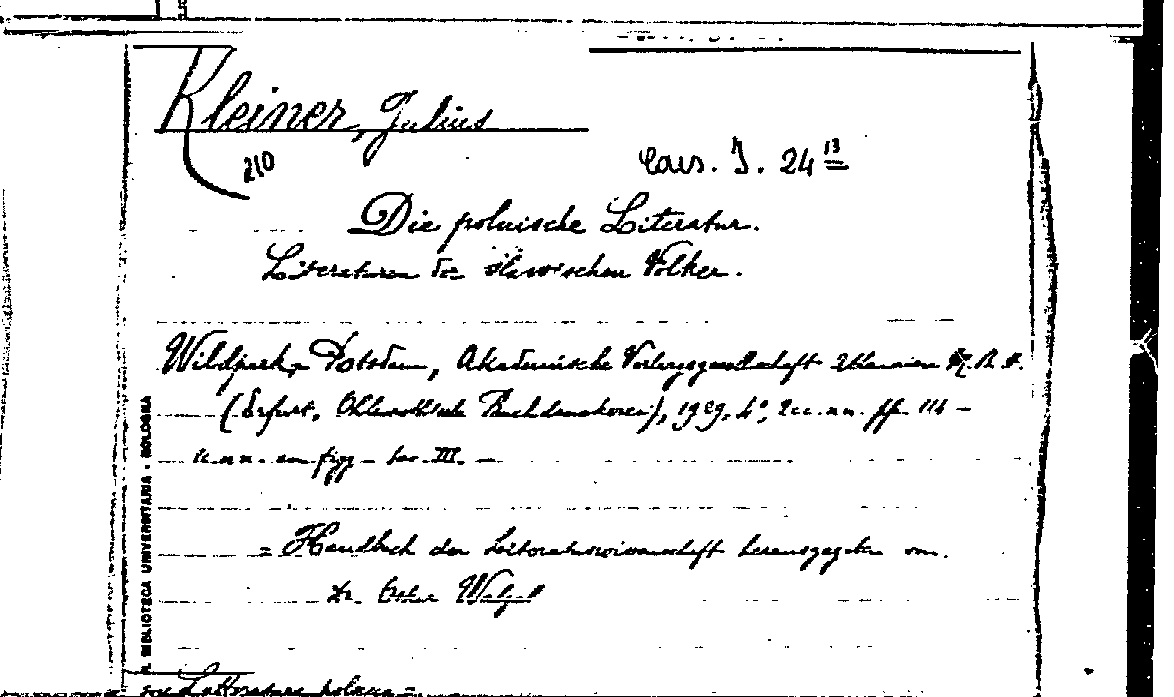 Kleiner, Julius
210
Caps. I. 24 13
Die polnische Literatur.
Literaturen der slawischen Völker.
Wildpark-Potsdam, Akademische Verlagsgesellschaft Athenaion M.B.H.
(Erfurt, Ohlenrothsche Buchdruckerei), 1929, 4°, 2cc.nn. ff. 114 -
c.nn. con figg - tav. III. -
= Handbuch der Literaturwissenschaft herausgegeben von.
Dr. Oskar Walzel
R. BIBLIOTECA UNIVERSITARIA - BOLOGNA
Letteratura polacca =